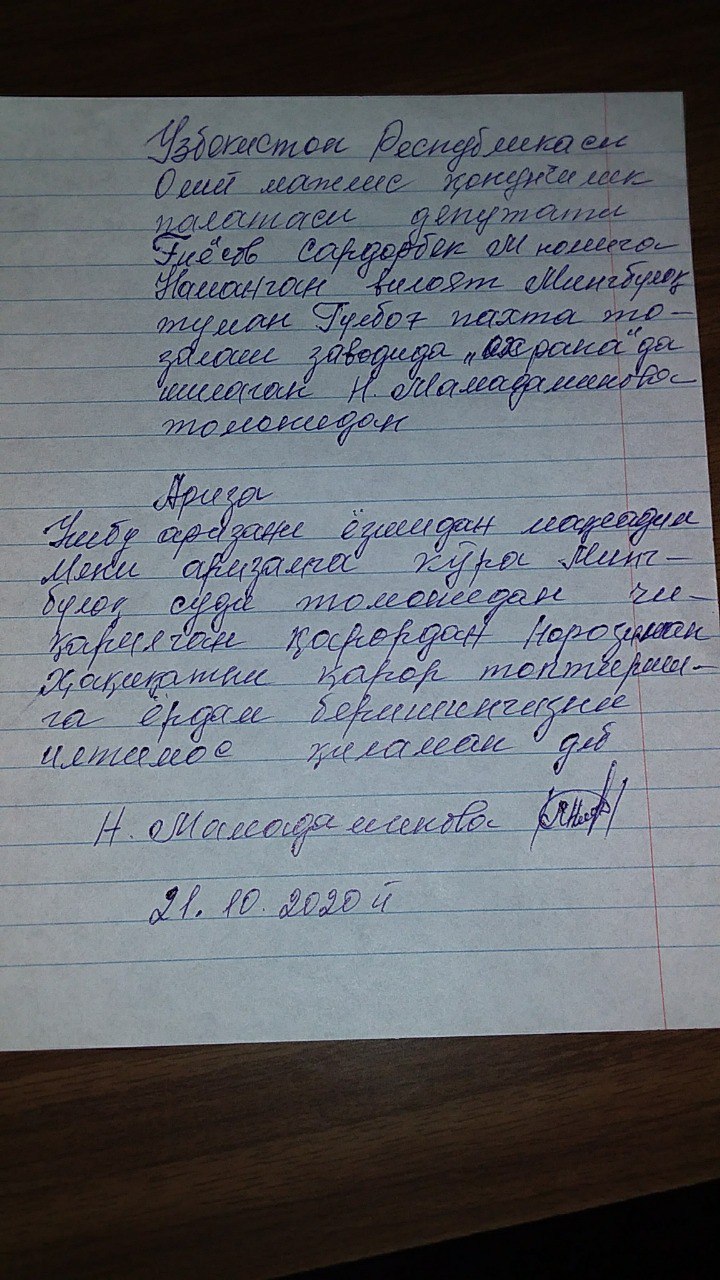 Узбекистон Республикаси
Олий мажлис қонунчилик
палатаси депутати
Ғиёсов Сардорбек М номига
Наманган вилоят Мингбулоқ
туман Гулбоғ пахта то-
залаш заводида „охрана"да
ишлаган Н. Мамадаминова
томонидан
Ариза
Ушбу аризани ёзишдан мақсадим
Мени аризамга кўра Минг-
булоқ суди томонидан чи-
қарилган қарордан норозиман
Ҳақиқатни қарор топтириш-
га ёрдам беришингизни
илтимос қиламан деб
Н. Мамадаминова
21. 10. 2020 й